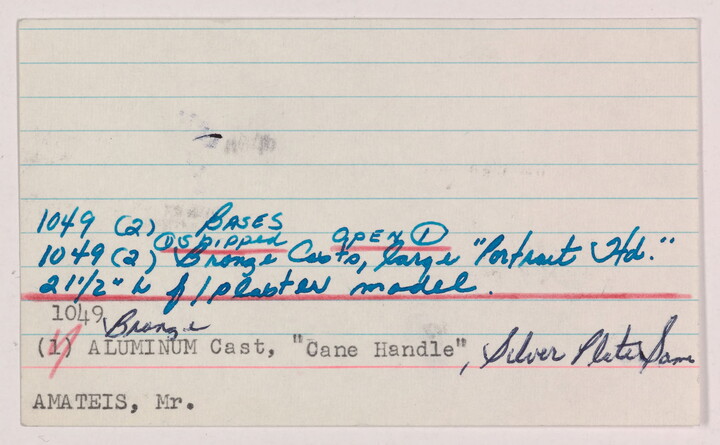 1049 (2) BASES
① Shipped OPEN ①
1049 (2) Bronze Casts, large "Portrait Hd."
21 1/2" h f/plaster model.
1049
Bronze
(1) ALUMINUM Cast, "Cane Handle", Silver Plate Same
AMATEIS, Mr.